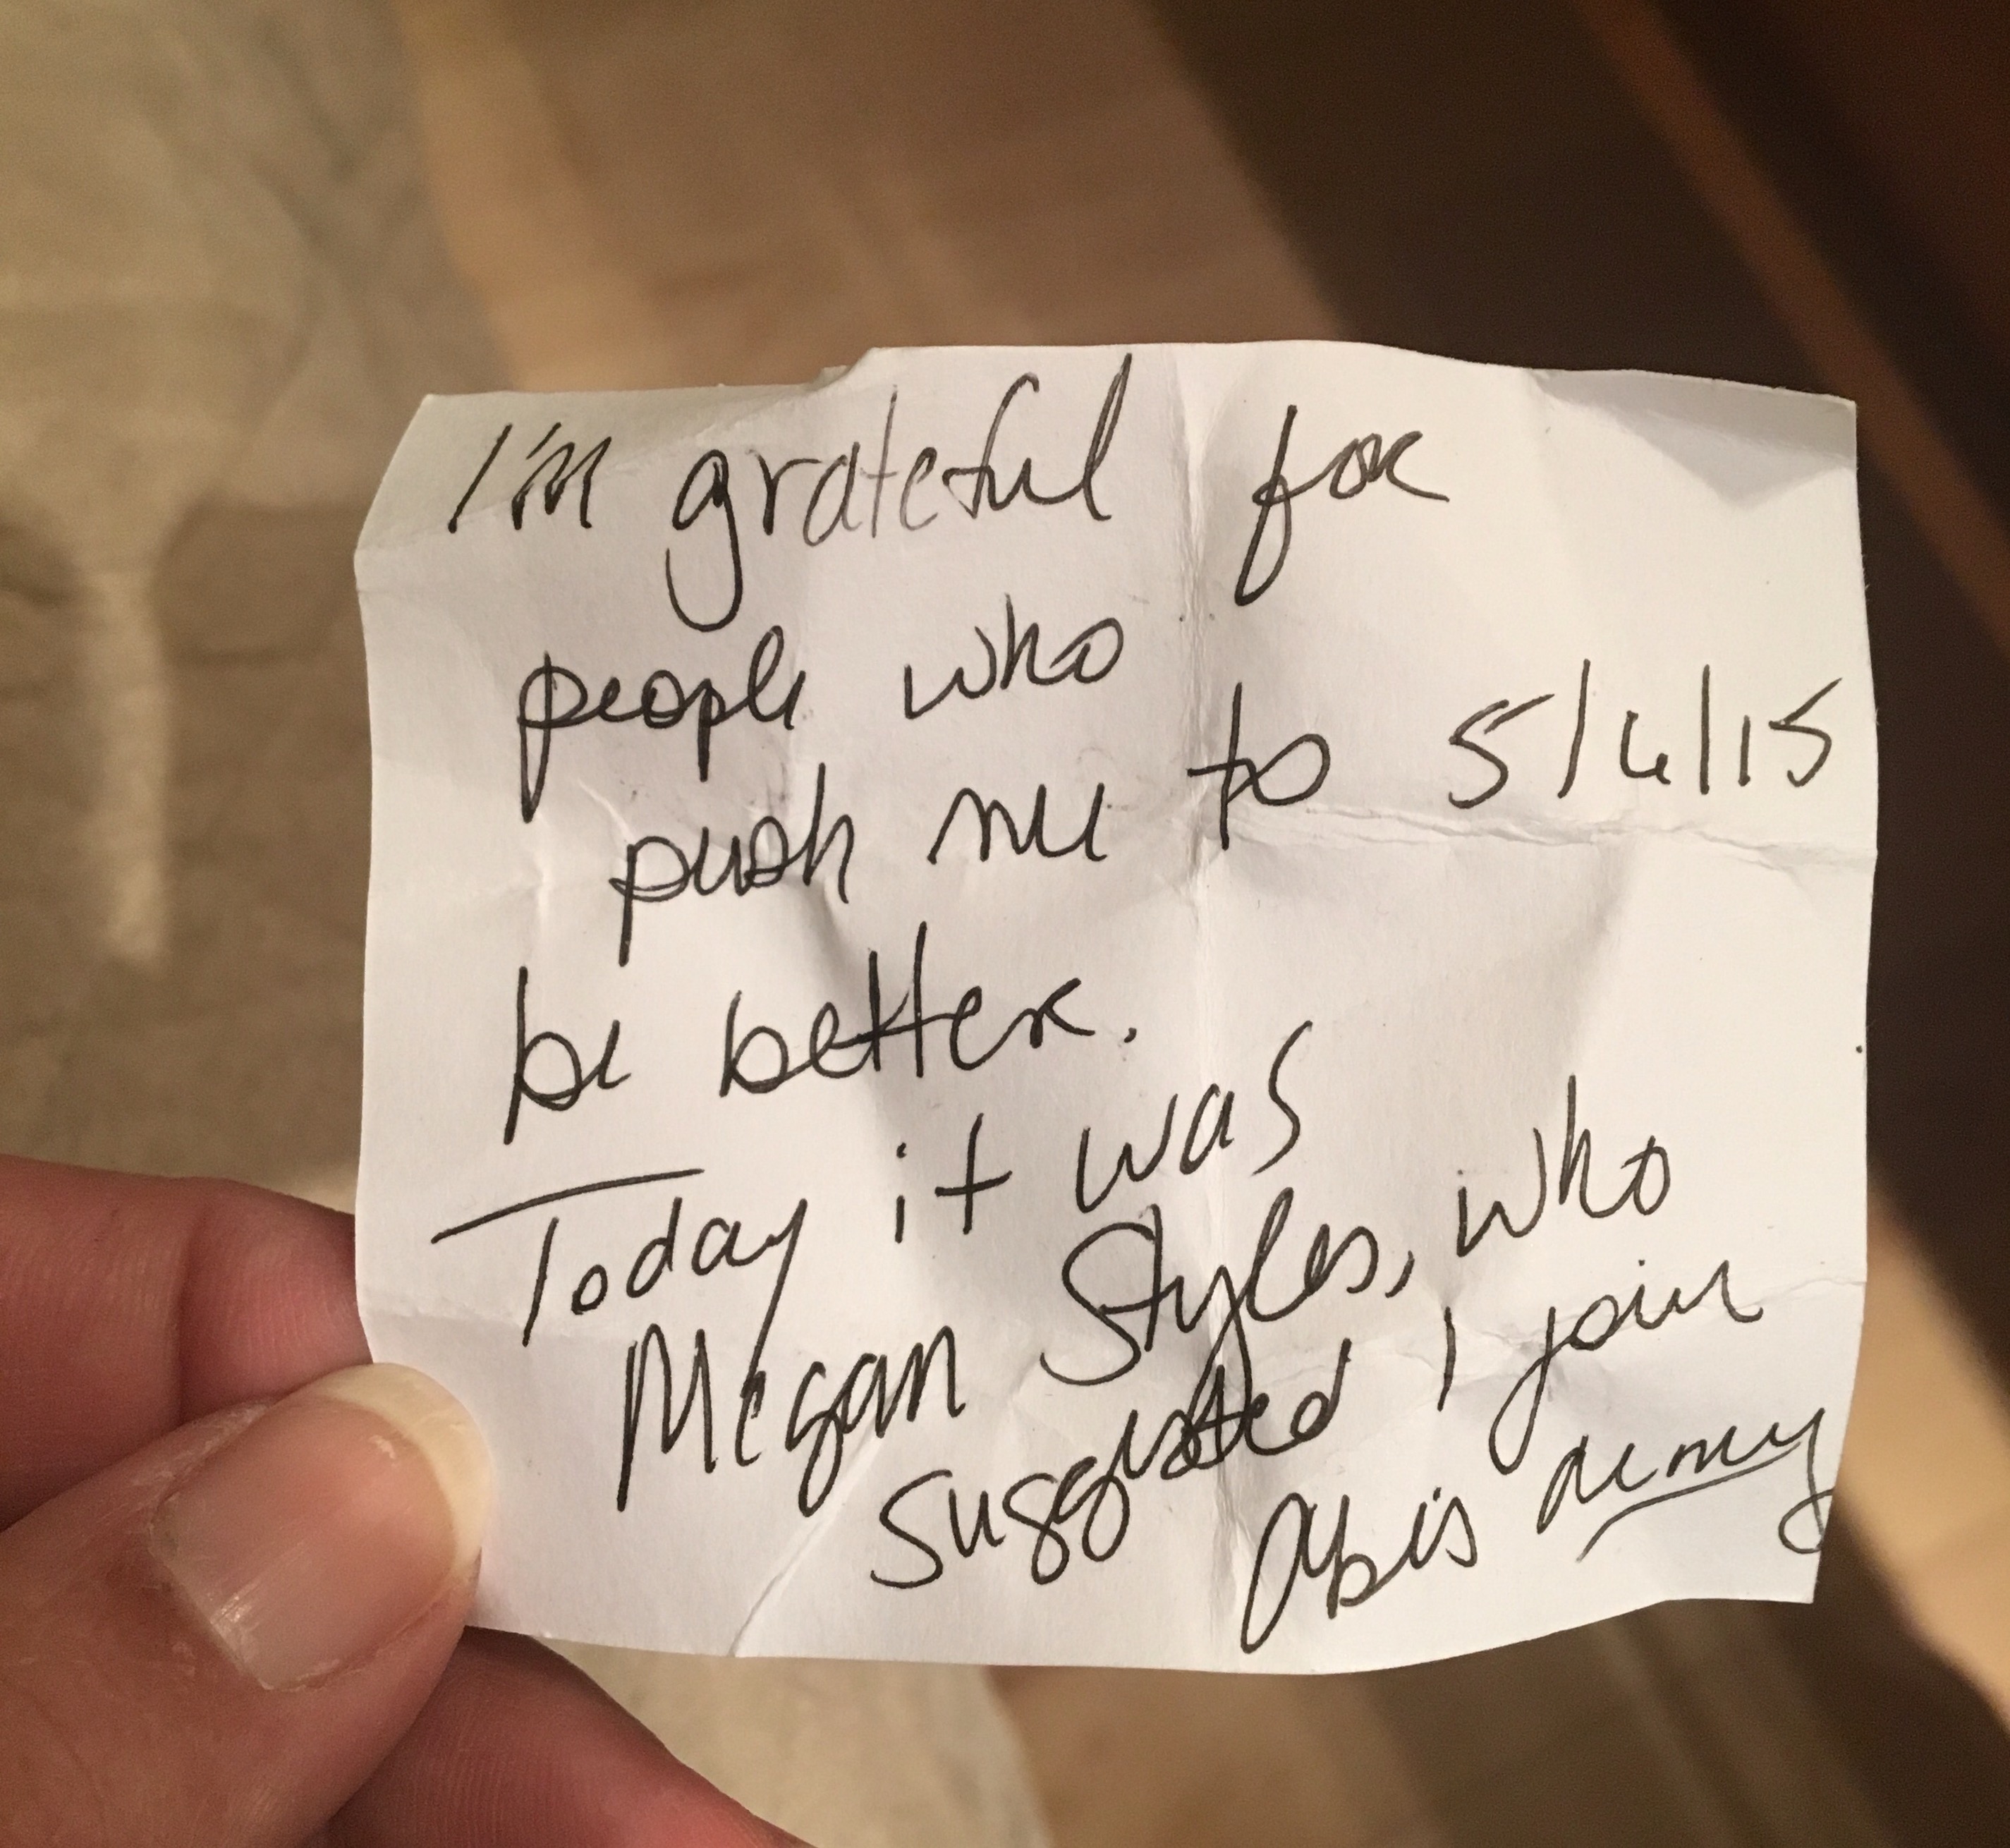 I'm grateful for
people who
push me to 5/6/15
be better.
Today it was
Megan Styles, who
suggested I join
Abis army